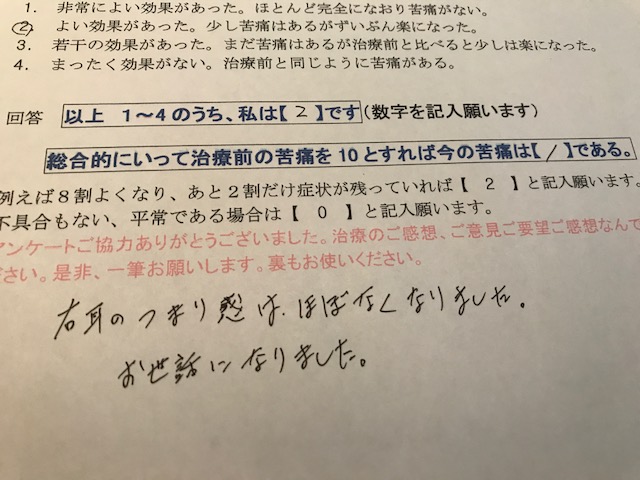 1. 非常によい効果があった。ほとんど完全になおり苦痛がない。
2. よい効果があった。少し苦痛はあるがずいぶん楽になった。
3. 若干の効果があった。まだ苦痛はあるが治療前と比べると少しは楽になった。
4. まったく効果がない。治療前と同じように苦痛がある。
回答 以上 1～4のうち、私は【 2 】です(数字を記入願います)
総合的にいって治療前の苦痛を10とすれば今の苦痛は【 / 】である。
例えば8割よくなり、あと2割だけ症状が残っていれば【 2 】と記入願います。
不具合もない、平常である場合は【 0 】と記入願います。
アンケートご協力ありがとうございました。治療のご感想、ご意見ご要望ご感想なんで
ださい。是非、一筆お願いします。裏もお使いください。
右耳のつまり感は、ほぼなくなりました。
お世話になりました。